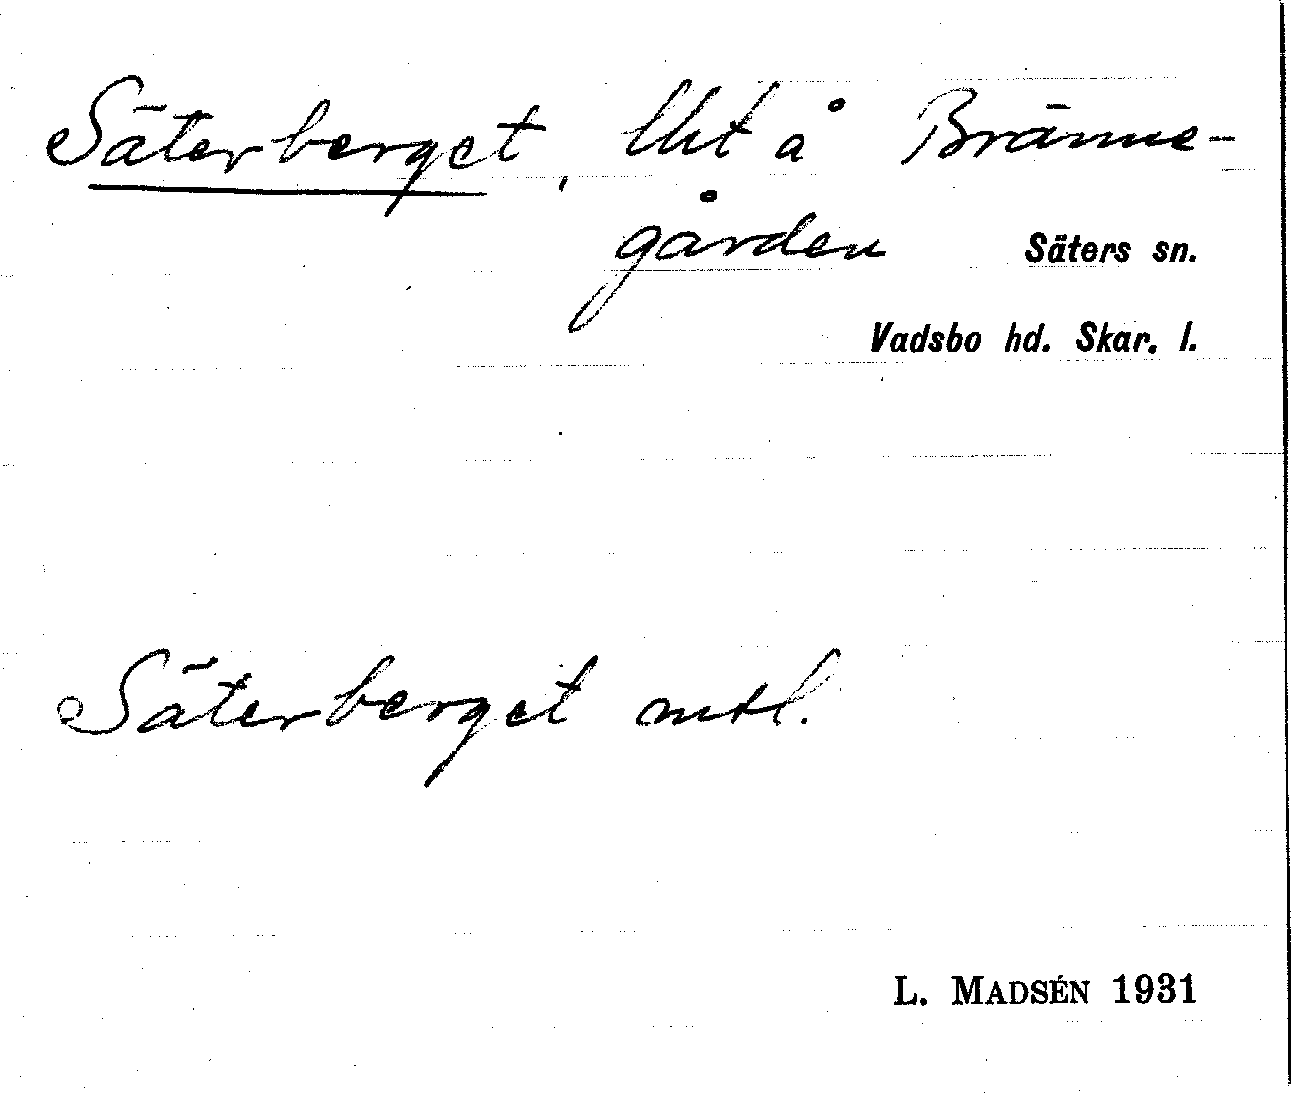 Säterberget, lht å Bränne-
gården
Säters sn.
Vadsbo hd. Skar. l.
Säterberget mtl.
L. MADSÉN 1931